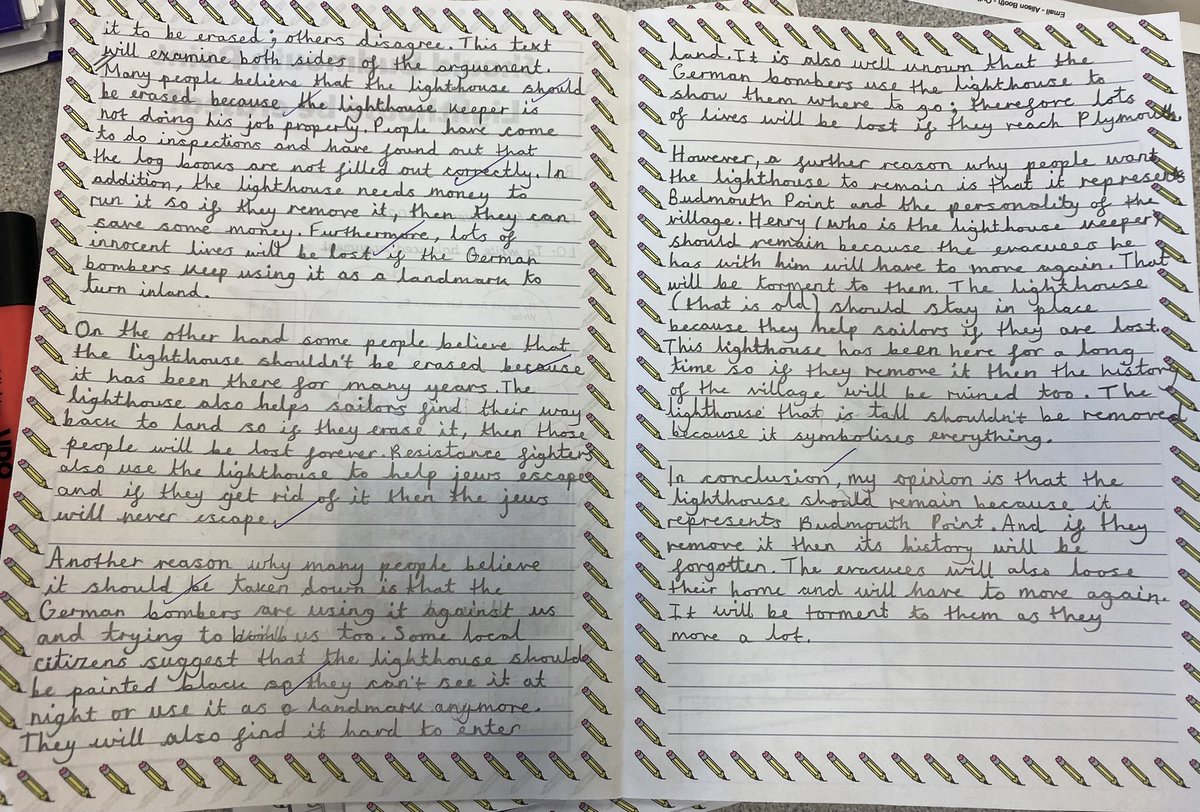 it to be erased; others disagree. This text
will examine both sides of the argument.
Many people believe that the lighthouse should
be erased because the lighthouse keeper is
not doing his job properly. People have come
to do inspections and have found out that
the log books are not filled out correctly. In
addition, the lighthouse needs money to
run it so if they remove it, then they can
save some money. Furthermore, lots of
innocent lives will be lost if the German
bombers keep using it as a landmark to
turn inland.
On the other hand some people believe that
the lighthouse shouldn't be erased because
it has been there for many years. The
lighthouse also helps sailors find their way
back to land so if they erase it, then those
people will be lost forever. Resistance fighters
also use the lighthouse to help jews escape
and if they get rid of it then the jews
will never escape.
Another reason why many people believe
it should be taken down is that the
German bombers are using it against us
and trying to bomb us too. Some local
citizens suggest that the lighthouse should
be painted black so they can't see it at
night or use it as a landmark anymore.
They will also find it hard to enter
land. It is also well unown that the
German bombers use the lighthouse to
show them where to go; therefore lots
of lives will be lost if they reach Plymouth
However, a further reason why people want
the lighthouse to remain is that it represents
Budmouth Point and the personality of the
village. Henry (who is the lighthouse keeper)
should remain because the evacuees he
has with him will have to move again. That
will be torment to them. The lighthouse
(that is old) should stay in place
because they help sailors if they are lost.
This lighthouse has been here for a long
time so if they remove it then the history
of the village will be ruined too. The
lighthouse that is tall shouldn't be removed
because it symbolises everything.
In conclusion, my opinion is that the
lighthouse should remain because it
represents Budmouth Point. And if they
remove it then its history will be
forgotten. The evacuees will also loose
their home and will have to move again.
It will be torment to them as they
move a lot.